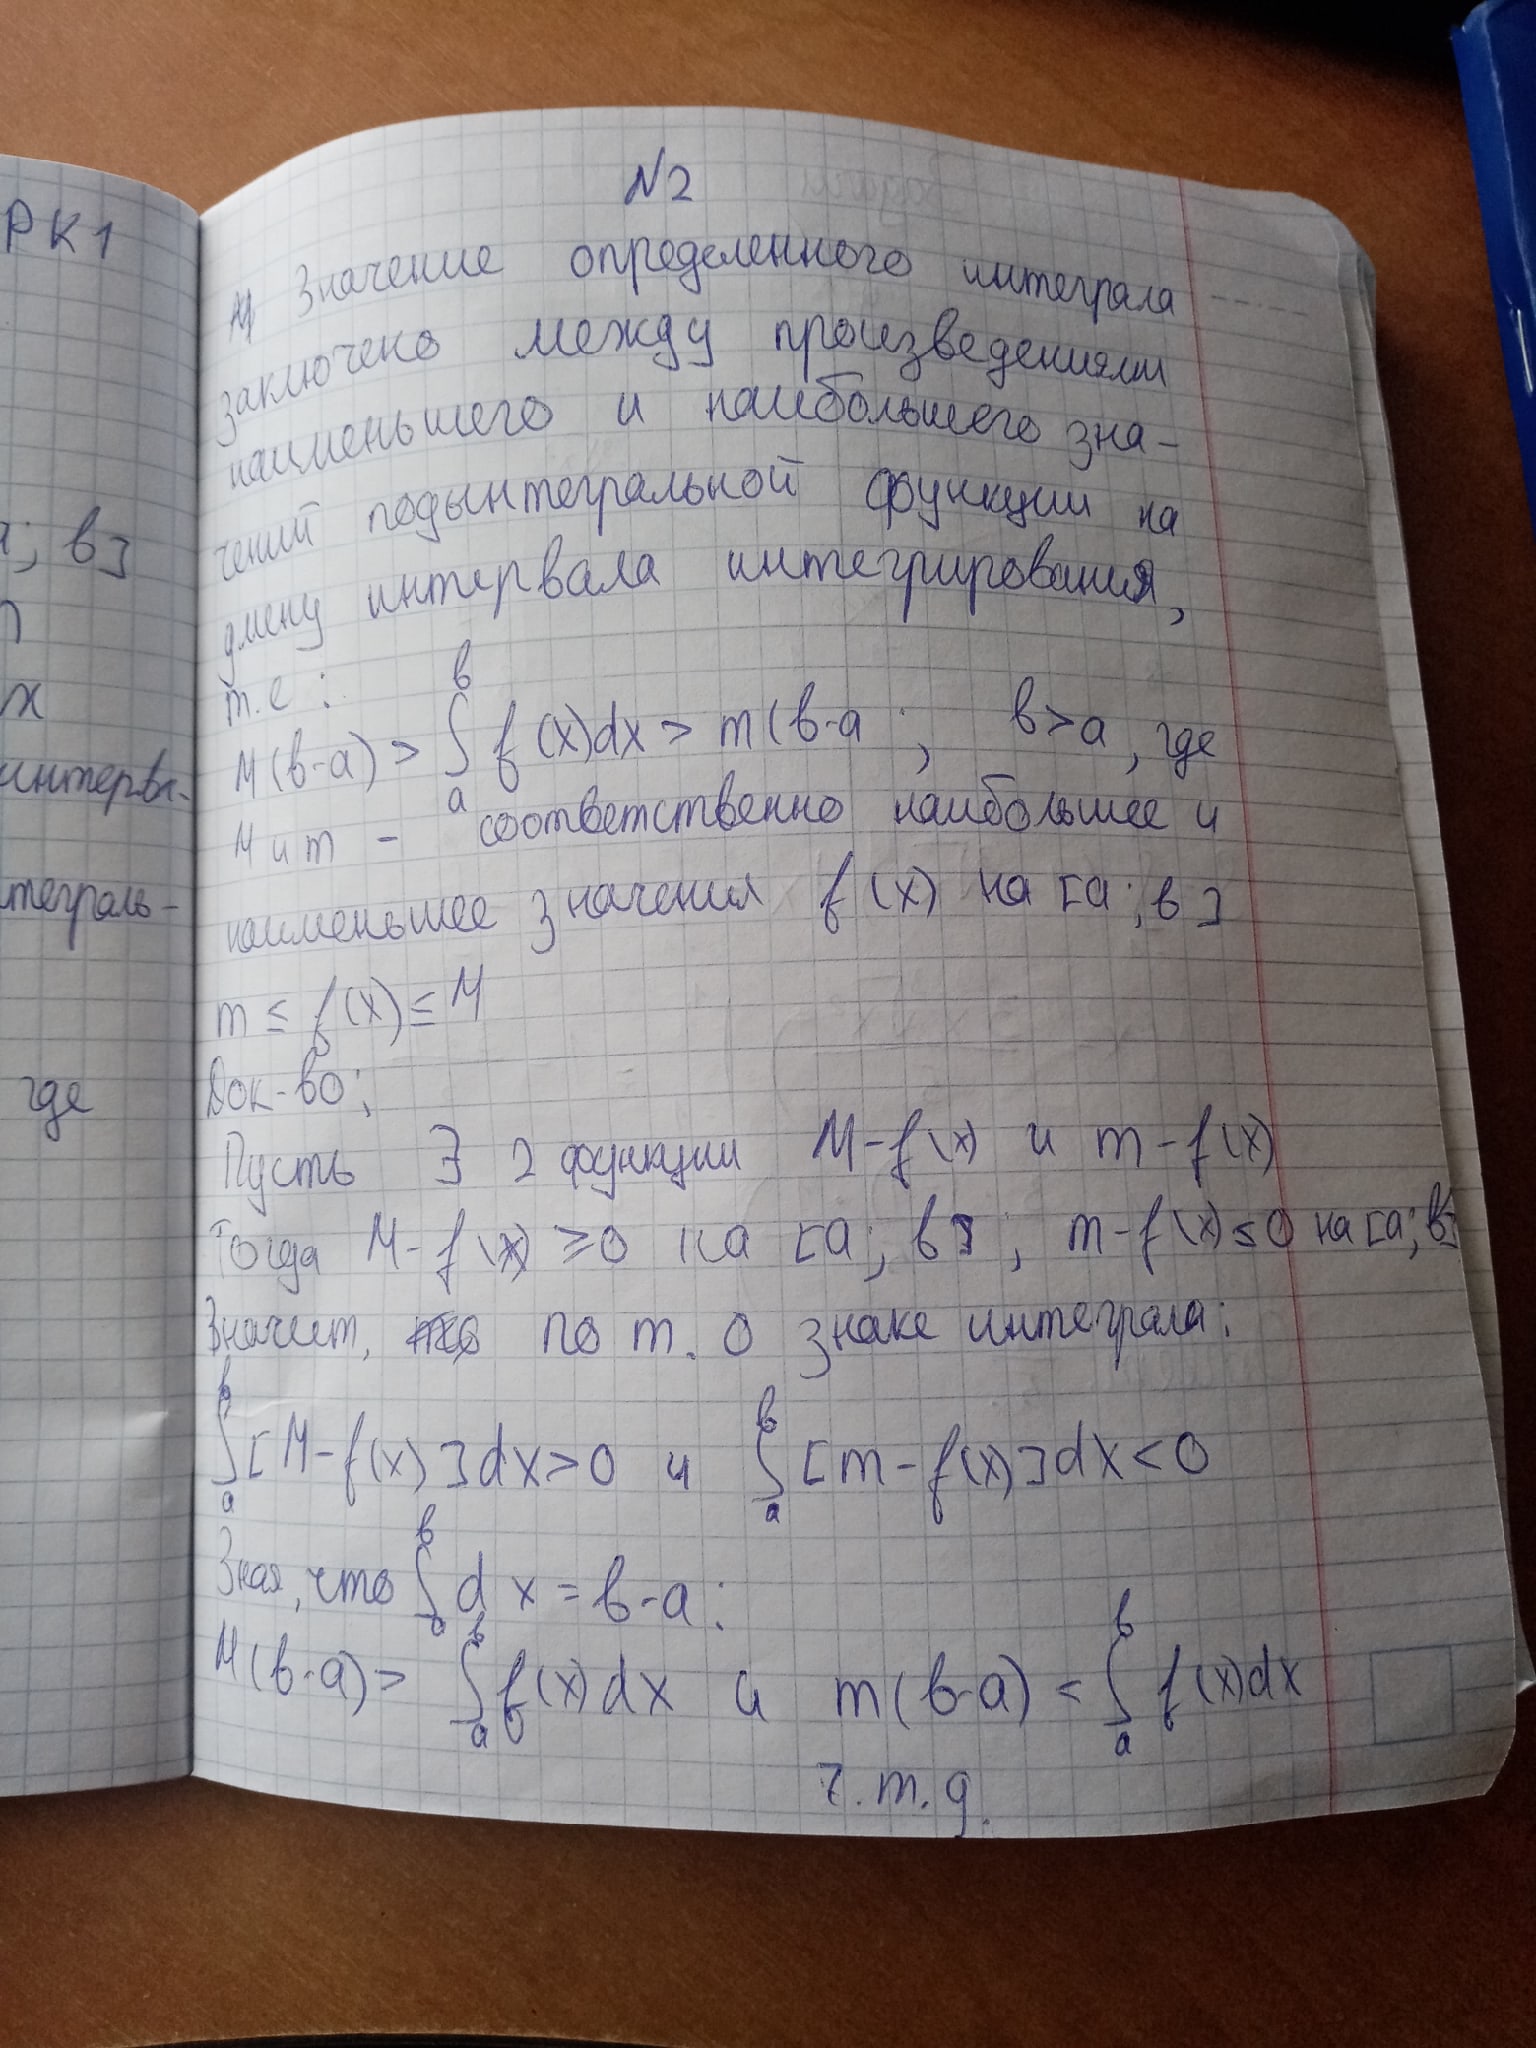 РК1
; в]
х
интерва-
теграль-
где
N2
Значение определенного интеграла
заключено между произведениями
наименьшего и наибольшего зна-
чений подынтегральной функции на
длину интервала интегрирования,
т.е:
M(в-а) > ∫ₐᵇ f(x)dx > m(в-а ; в>а, где
M и m - соответственно наибольшее и
наименьшее значения f(x) на [а; в]
m ≤ f(x) ≤ M
Док-во:
Пусть ∃ 2 функции M-f(x) и m-f(x)
Тогда M-f(x) ≥0 на [а; в]; m-f(x)≤0 на [а; в]
Значит, по т. о знаке интеграла:
∫ₐᵇ [M-f(x)]dx>0 и ∫ₐᵇ [m-f(x)]dx<0
Зная, что ∫ₐᵇ dx = в-а:
M(в-а)> ∫ₐᵇ f(x)dx и m(в-а) < ∫ₐᵇ f(x)dx
ч.т.д.